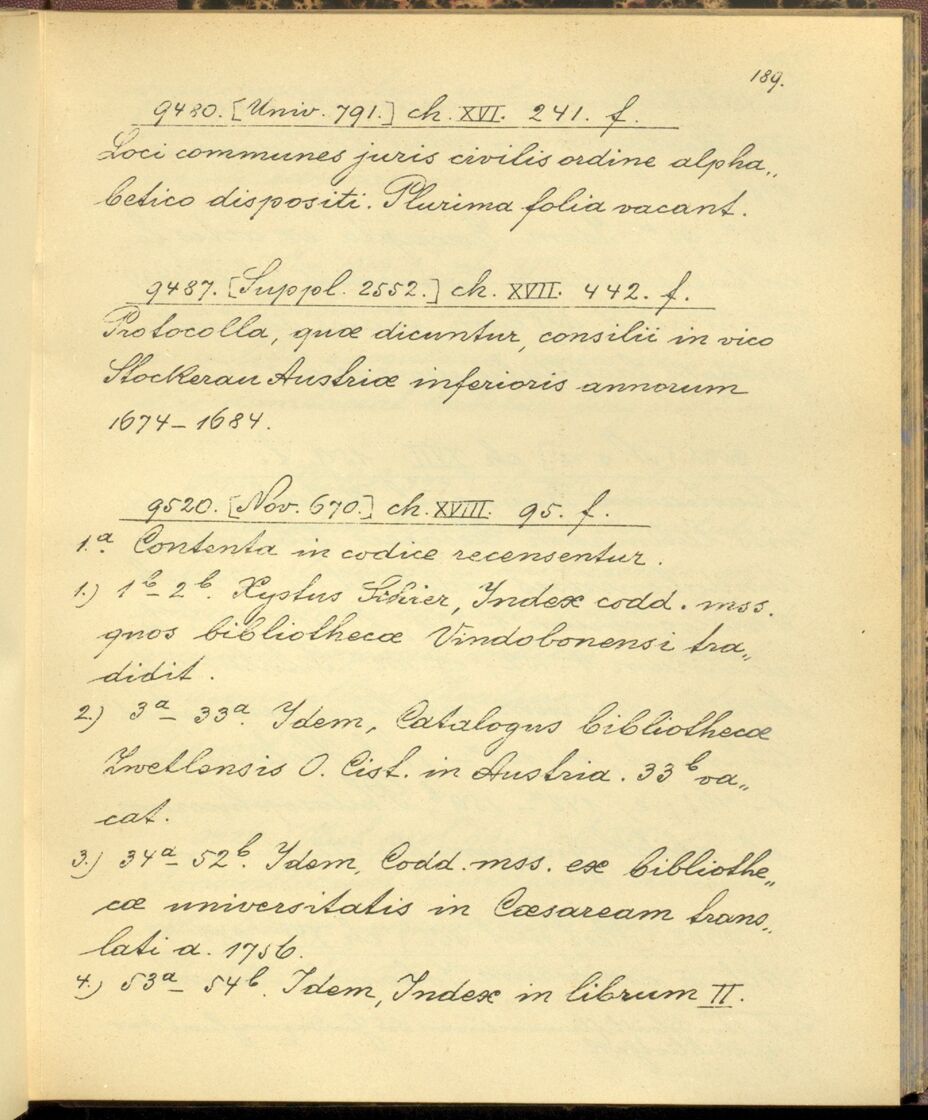 189.
9480. [Univ. 791.] ch. XVI. 241. f.
Loci communes juris civilis ordine alpha„
betico dispositi. Plurima folia vacant.
9487. [Suppl. 2552.] ch. XVII. 442. f.
Protocolla, quæ dicuntur, consilii in vico
Stockerau Austriæ inferioris annorum
1674–1684.
9520. [Nov. 670.] ch. XVIII. 95. f.
1.a Contenta in codice recensentur.
1.) 1b–2b. Xystus Schier, Index codd. mss.
quos bibliothecæ Vindobonensi tra„
didit.
2.) 3a–33a. Idem, Catalogus bibliothecæ
Zwetlensis O. Cist. in Austria. 33b va„
cat.
3.) 34a–52b. Idem, Codd. mss. ex bibliothe„
cæ universitatis in Cæsaream trans„
lati a. 1756.
4.) 53a–54b. Idem, Index in librum II.